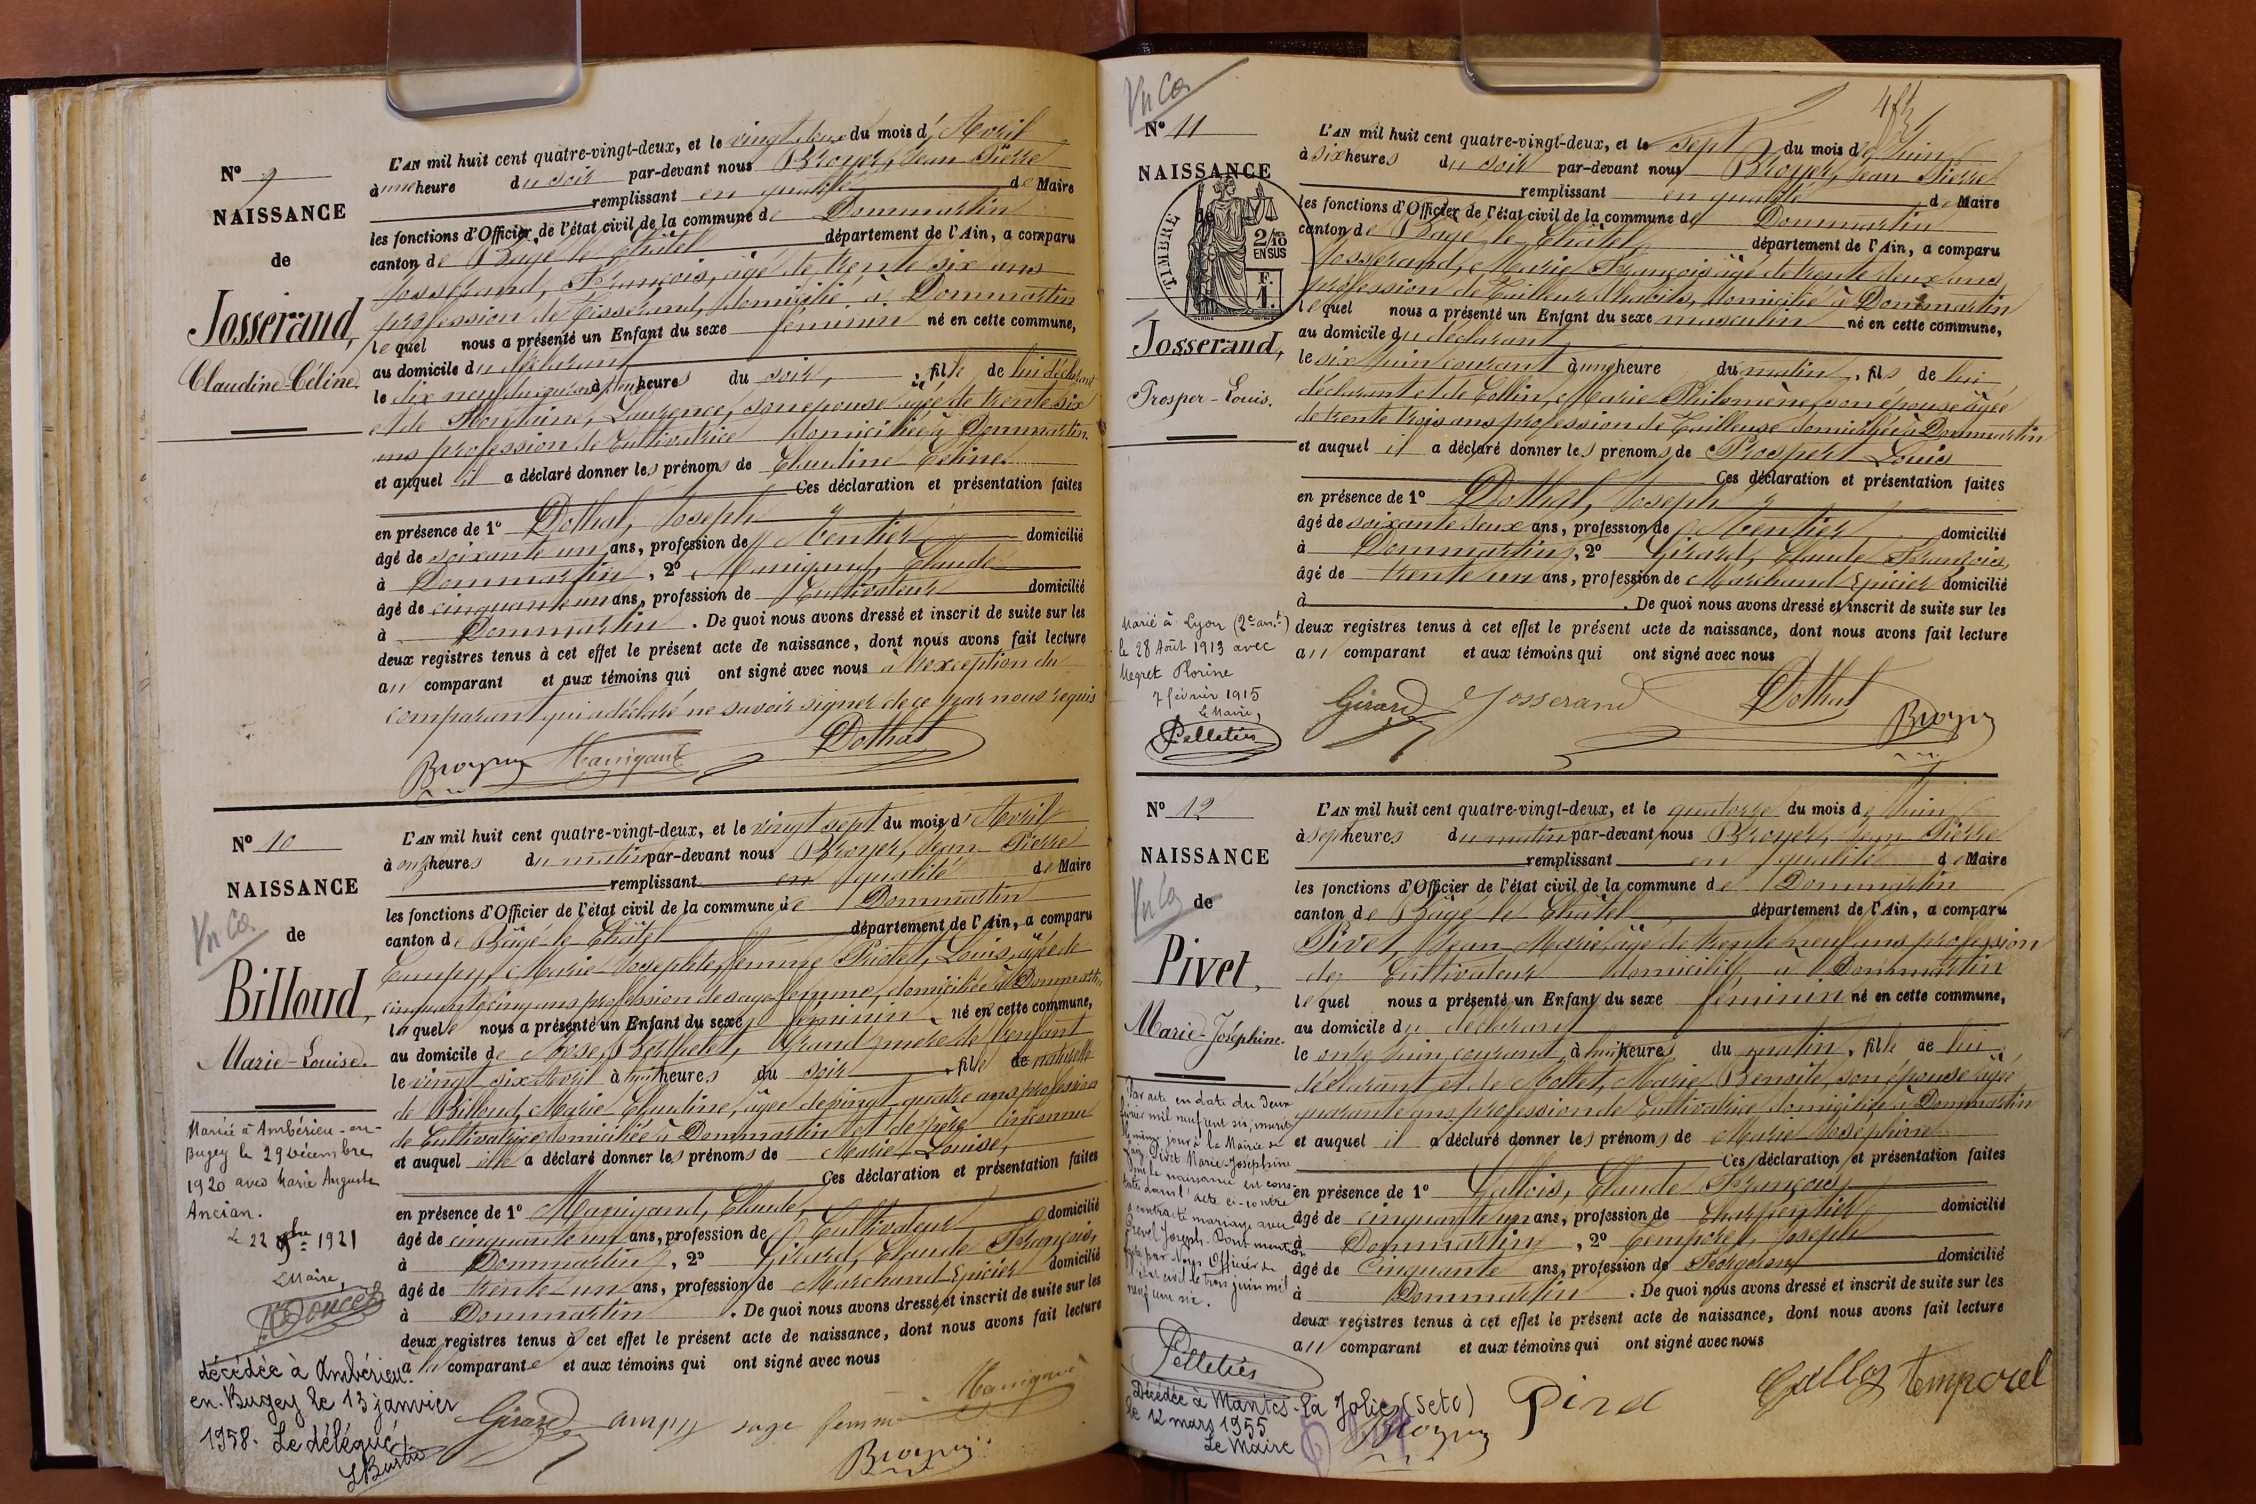 N° 9
NAISSANCE
de
Josserand,
Claudine-Céline.
L'AN mil huit cent quatre-vingt-deux, et le vingt deux du mois d' Avril
à une heure du soir par-devant nous Broyer, Jean Pierre
remplissant en qualité de Maire
les fonctions d'Officier de l'état civil de la commune de Dommartin
canton de Bagé le Châtel département de l'Ain, a comparu
Josserand, François, âgé de trente six ans
profession de Tisserand, domicilié à Dommartin
lequel nous a présenté un Enfant du sexe féminin né en cette commune,
au domicile du déclarant
le dix neuf du courant à heures du soir, fille de lui déclarant
et de Fontaine, Laurence, son épouse âgée de trente six
ans profession de Cultivatrice domiciliée à Dommartin
et auquel il a déclaré donner les prénoms de Claudine Céline.
Ces déclaration et présentation faites
en présence de 1° Dothal, Joseph
âgé de soixante un ans, profession de Rentier domicilié
à Dommartin, 2° Manigand, Claude
âgé de cinquante un ans, profession de Cultivateur domicilié
à Dommartin. De quoi nous avons dressé et inscrit de suite sur les
deux registres tenus à cet effet le présent acte de naissance, dont nous avons fait lecture
au comparant et aux témoins qui ont signé avec nous à l'exception du
comparant qui a déclaré ne savoir signer de ce par nous requis
Broyer Manigand Dothal
N° 10
NAISSANCE
de
Billoud,
Marie-Louise.
Mariée à Ambérieu-en-
Bugey le 29 Décembre
1920 avec Marie Auguste
Ancian.
Le 22 9bre 1921
Le Maire,
Doucet
décédée à Ambérieu
en-Bugey le 13 janvier
1958. Le délégué
L'AN mil huit cent quatre-vingt-deux, et le vingt sept du mois d' Avril
à onze heures du matin par-devant nous Broyer, Jean Pierre
remplissant en qualité de Maire
les fonctions d'Officier de l'état civil de la commune de Dommartin
canton de Bâgé-le-Châtel département de l'Ain, a comparu
Marie Josephte, femme Priolet, Louis, âgée de
cinquante cinq ans profession de sage femme, domiciliée à Dommartin
laquelle nous a présenté un Enfant du sexe féminin né en cette commune,
au domicile de Berthelet, Grand mère de l'enfant
le vingt six Avril à huit heures du soir fille naturelle
de Billoud, Marie Claudine, âgée de vingt quatre ans profession
de Cultivatrice domiciliée à Dommartin et de père inconnu
et auquel elle a déclaré donner les prénoms de Marie Louise,
Ces déclaration et présentation faites
en présence de 1° Manigand, Claude,
âgé de cinquante un ans, profession de Cultivateur domicilié
à Dommartin, 2° Girard, Claude François,
âgé de trente-un ans, profession de Marchand Epicier domicilié
à Dommartin. De quoi nous avons dressé et inscrit de suite sur les
deux registres tenus à cet effet le présent acte de naissance, dont nous avons fait lecture
à la comparante et aux témoins qui ont signé avec nous
Girard sage femme Manigand
Broyer
N° 11
NAISSANCE
de
TIMBRE
2/10 EN SUS
F. 1.
Josserand,
Prosper-Louis.
Marié à Lyon (2e arrt)
le 28 Août 1913 avec
Megret Florine
7 février 1915
Le Maire,
Pelletier
L'AN mil huit cent quatre-vingt-deux, et le sept du mois de Juin
à six heures du soir par-devant nous Broyer, Jean Pierre
remplissant en qualité de Maire
les fonctions d'Officier de l'état civil de la commune de Dommartin
canton de Bagé le Châtel département de l'Ain, a comparu
Josserand, Marie François âgé de trente deux ans
profession de Tailleur d'habits, domicilié à Dommartin
lequel nous a présenté un Enfant du sexe masculin né en cette commune,
au domicile du déclarant
le six juin courant à une heure du matin, fils de lui
déclarant et de Collin, Marie Philomène, son épouse âgée
de trente trois ans profession de Tailleuse domiciliée à Dommartin
et auquel il a déclaré donner les prénoms de Prosper Louis
Ces déclaration et présentation faites
en présence de 1° Dothal, Joseph
âgé de soixante deux ans, profession de Rentier domicilié
à Dommartin, 2° Girard, Claude François,
âgé de trente un ans, profession de Marchand Epicier domicilié
à . De quoi nous avons dressé et inscrit de suite sur les
deux registres tenus à cet effet le présent acte de naissance, dont nous avons fait lecture
au comparant et aux témoins qui ont signé avec nous
Girard Josserand Dothal Broyer
N° 12
NAISSANCE
de
Pivet,
Marie-Joséphine.
Par acte en date du deux
février mil neuf cent six, inscrit
le même jour à la Mairie de
Pivet Marie-Joséphine
dont la naissance est cons-
tatée dans l'acte ci-contre
a contracté mariage avec
Joseph. Dont mention
faite par Nous Officier de
l'état civil le trois juin mil
neuf cent six.
Pelletier
Décédée à Mantes-la Jolie (Seto)
le 12 mars 1955
Le Maire
L'AN mil huit cent quatre-vingt-deux, et le quatorze du mois de Juin
à sept heures du matin par-devant nous Broyer, Jean Pierre
remplissant en qualité de Maire
les fonctions d'Officier de l'état civil de la commune de Dommartin
canton de Bâgé le Châtel département de l'Ain, a comparu
Pivet, Jean Marie, âgé de trente neuf ans profession
de Cultivateur domicilié à Dommartin
lequel nous a présenté un Enfant du sexe féminin né en cette commune,
au domicile du déclarant
le onze Juin courant à huit heures du matin, fille de lui
déclarant et de Mottet, Marie Benoite, son épouse âgée
quarante ans, profession de Cultivatrice domiciliée à Dommartin
et auquel il a déclaré donner les prénoms de Marie Joséphine
Ces déclaration et présentation faites
en présence de 1° Gallois, Claude François,
âgé de cinquante un ans, profession de Charpentier domicilié
à Dommartin, 2° Temporel, Joseph
âgé de cinquante ans, profession de Forgeron domicilié
à Dommartin. De quoi nous avons dressé et inscrit de suite sur les
deux registres tenus à cet effet le présent acte de naissance, dont nous avons fait lecture
au comparant et aux témoins qui ont signé avec nous
Gallos temporel
Broyer